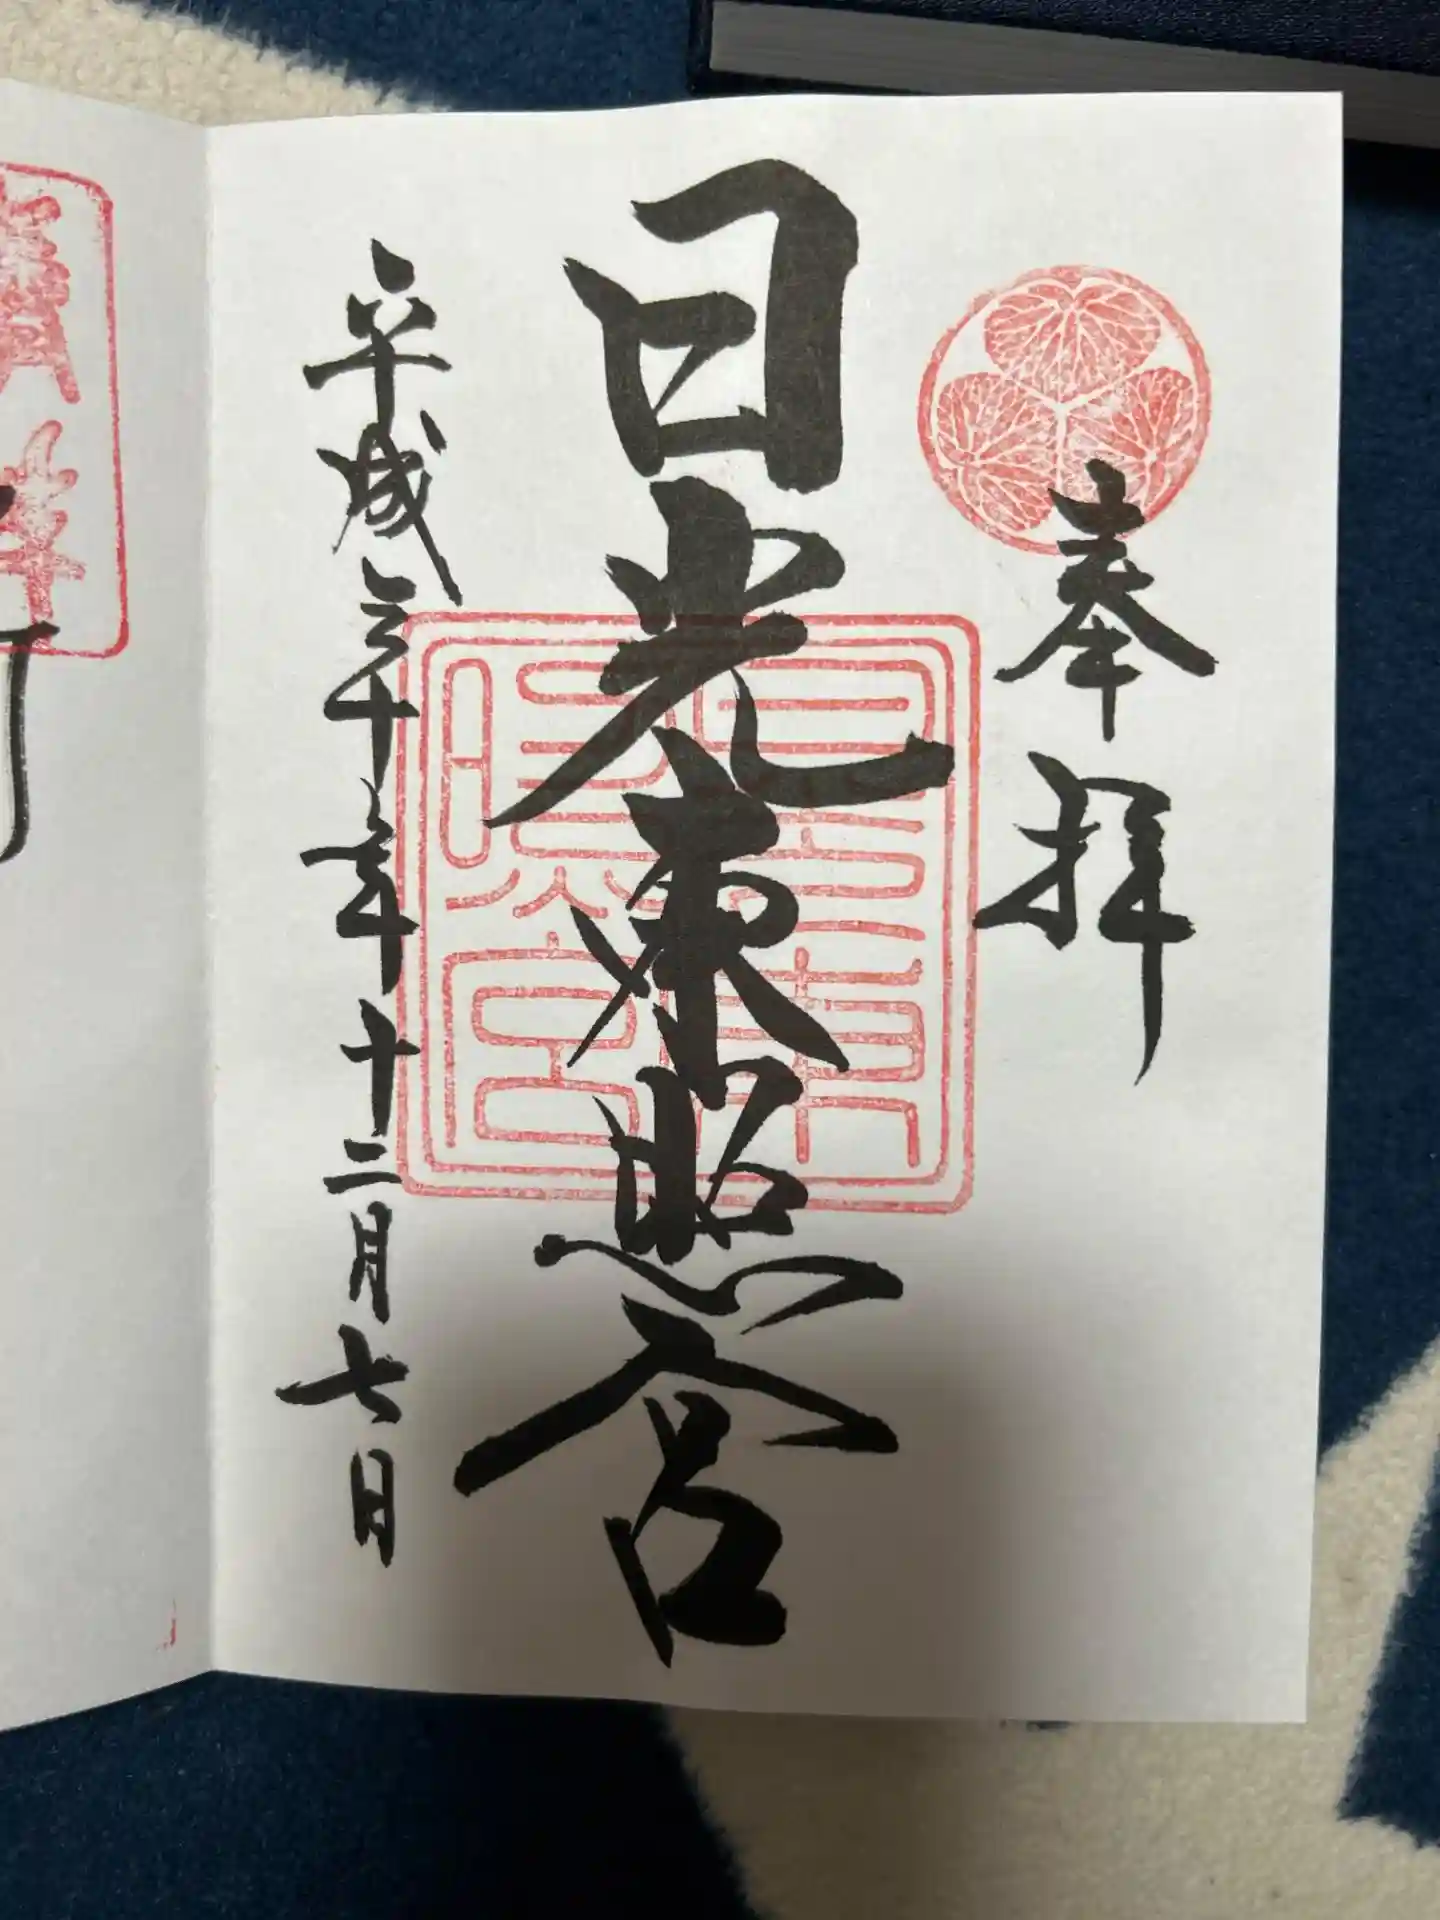 奉拝
日光東照宮
日光東
照宮
平成三十年十二月七日